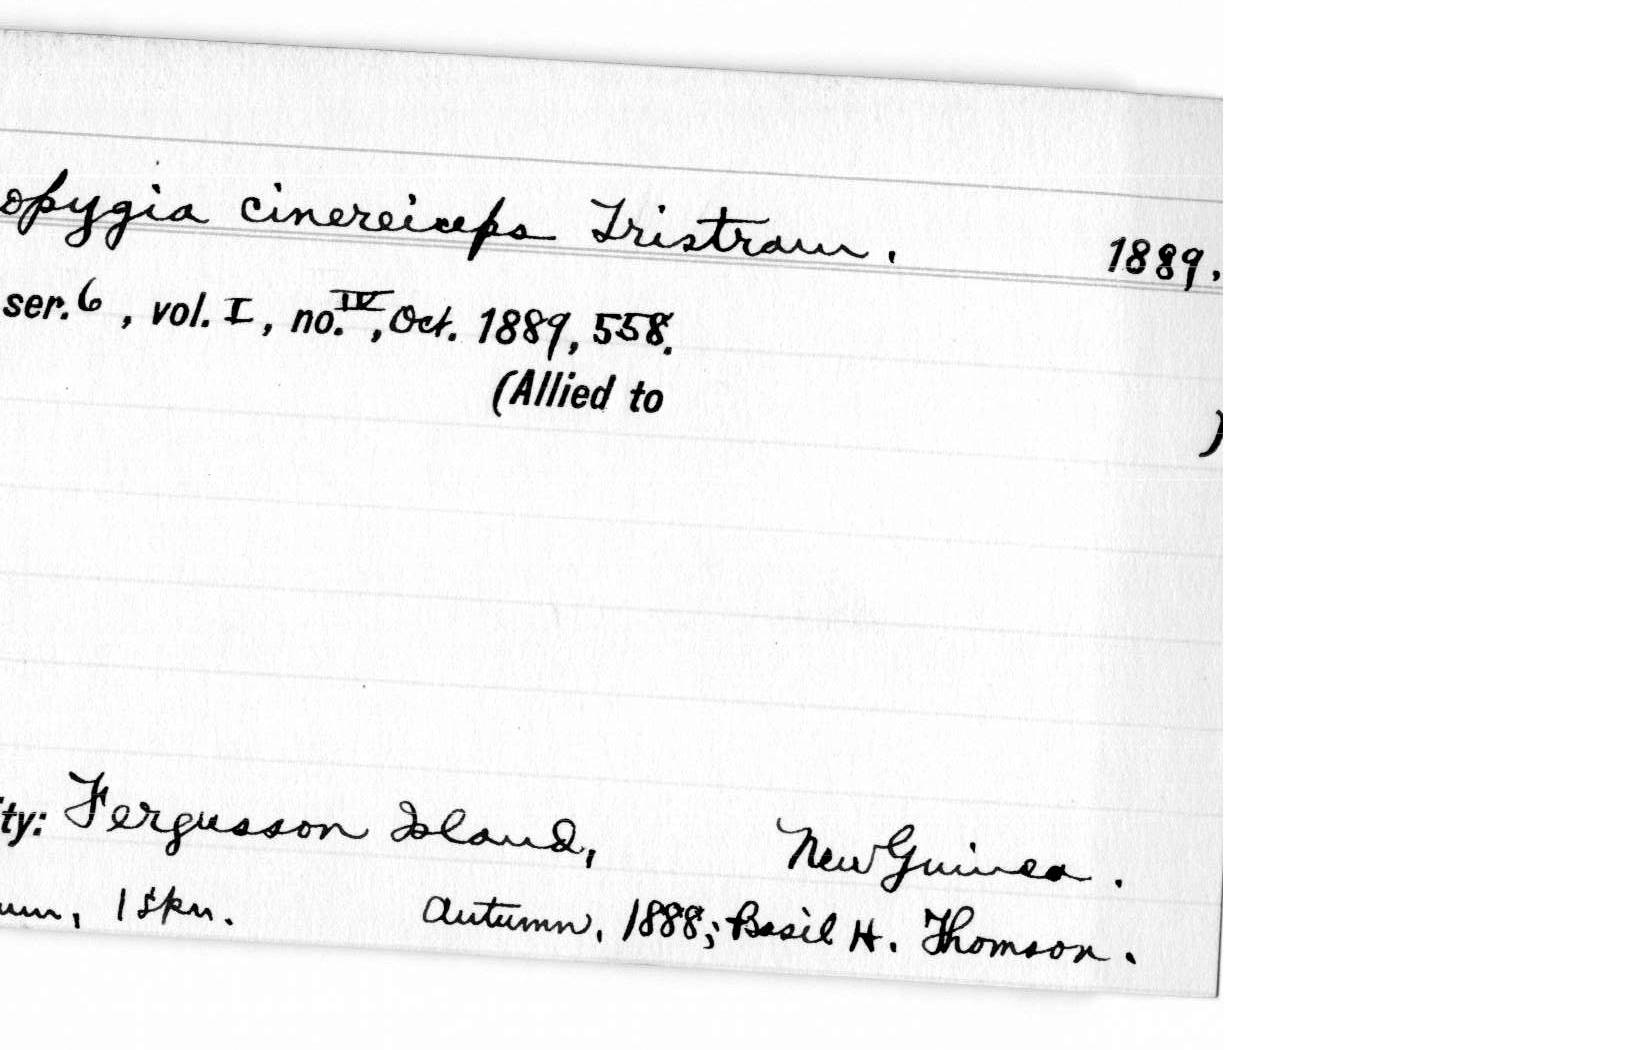 opygia cinereiceps Tristram. 1889.
ser. 6, vol. I, no. IV, Oct. 1889, 558.
(Allied to )
ity: Fergusson Island, New Guinea.
um, 1 skn. Autumn, 1888; Basil H. Thomson.